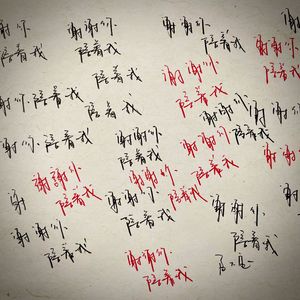 谢你
陪着我
谢谢你
陪着我
谢谢你
陪着我
谢谢
陪着
你、陪着我
陪着我
谢谢你
陪着我
谢谢
谢你、陪着我
谢谢你
陪着我
谢谢你
陪着我
谢谢
谢谢你
陪着我
谢谢你
陪着我
谢谢你
陪着我
谢谢你
陪着我
谢谢你
陪着我
谢谢你
陪着我